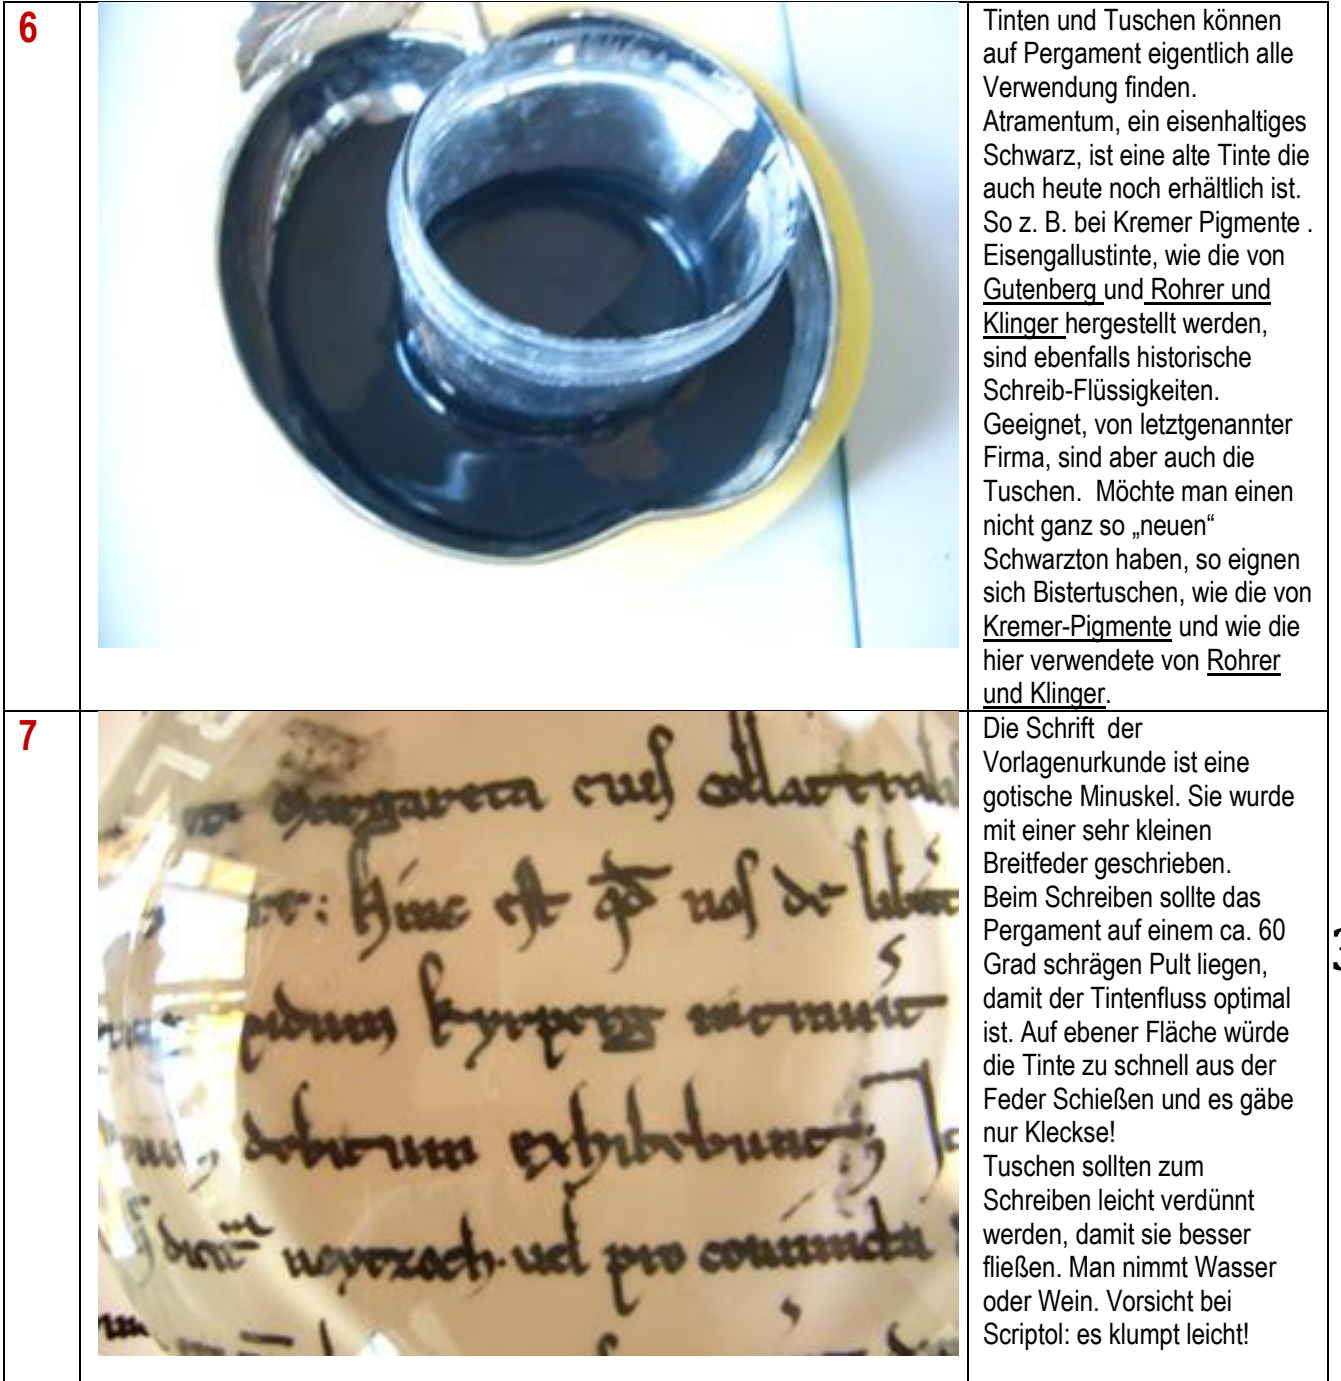 6
Tinten und Tuschen können
auf Pergament eigentlich alle
Verwendung finden.
Atramentum, ein eisenhaltiges
Schwarz, ist eine alte Tinte die
auch heute noch erhältlich ist.
So z. B. bei Kremer Pigmente .
Eisengallustinte, wie die von
Gutenberg und Rohrer und
Klinger hergestellt werden,
sind ebenfalls historische
Schreib-Flüssigkeiten.
Geeignet, von letztgenannter
Firma, sind aber auch die
Tuschen.  Möchte man einen
nicht ganz so „neuen“
Schwarzton haben, so eignen
sich Bistertuschen, wie die von
Kremer-Pigmente und wie die
hier verwendete von Rohrer
und Klinger.
7
Margareta cuiſ
Hinc eſt qd noſ de
kyrperg
debitum exhibebunt
uel pro
Die Schrift  der
Vorlagenurkunde ist eine
gotische Minuskel. Sie wurde
mit einer sehr kleinen
Breitfeder geschrieben.
Beim Schreiben sollte das
Pergament auf einem ca. 60
Grad schrägen Pult liegen,
damit der Tintenfluss optimal
ist. Auf ebener Fläche würde
die Tinte zu schnell aus der
Feder Schießen und es gäbe
nur Kleckse!
Tuschen sollten zum
Schreiben leicht verdünnt
werden, damit sie besser
fließen. Man nimmt Wasser
oder Wein. Vorsicht bei
Scriptol: es klumpt leicht!